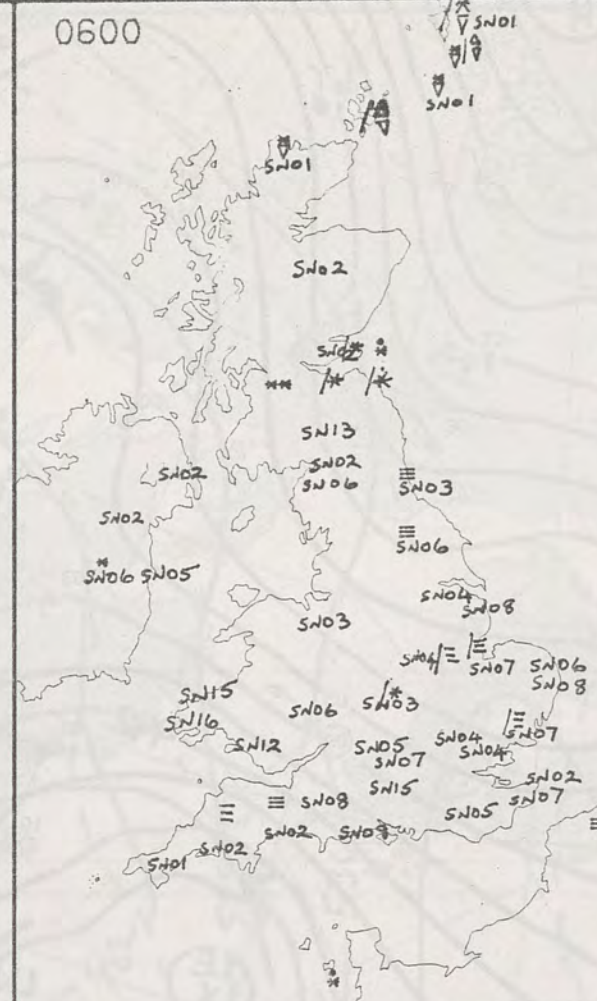 0600
SN01
SN01
SN01
SN02
SN02
SN13
SN02
SN02
SN06
SN03
SN02
SN06
SN06 SN05
SN04
SN08
SN03
SN04
SN07
SN06
SN08
SN15
SN03
SN16
SN06
SN04
SN07
SN12
SN05
SN04
SN07
SN02
SN15
SN07
SN08
SN05
SN02
SN08
SN02
SN01